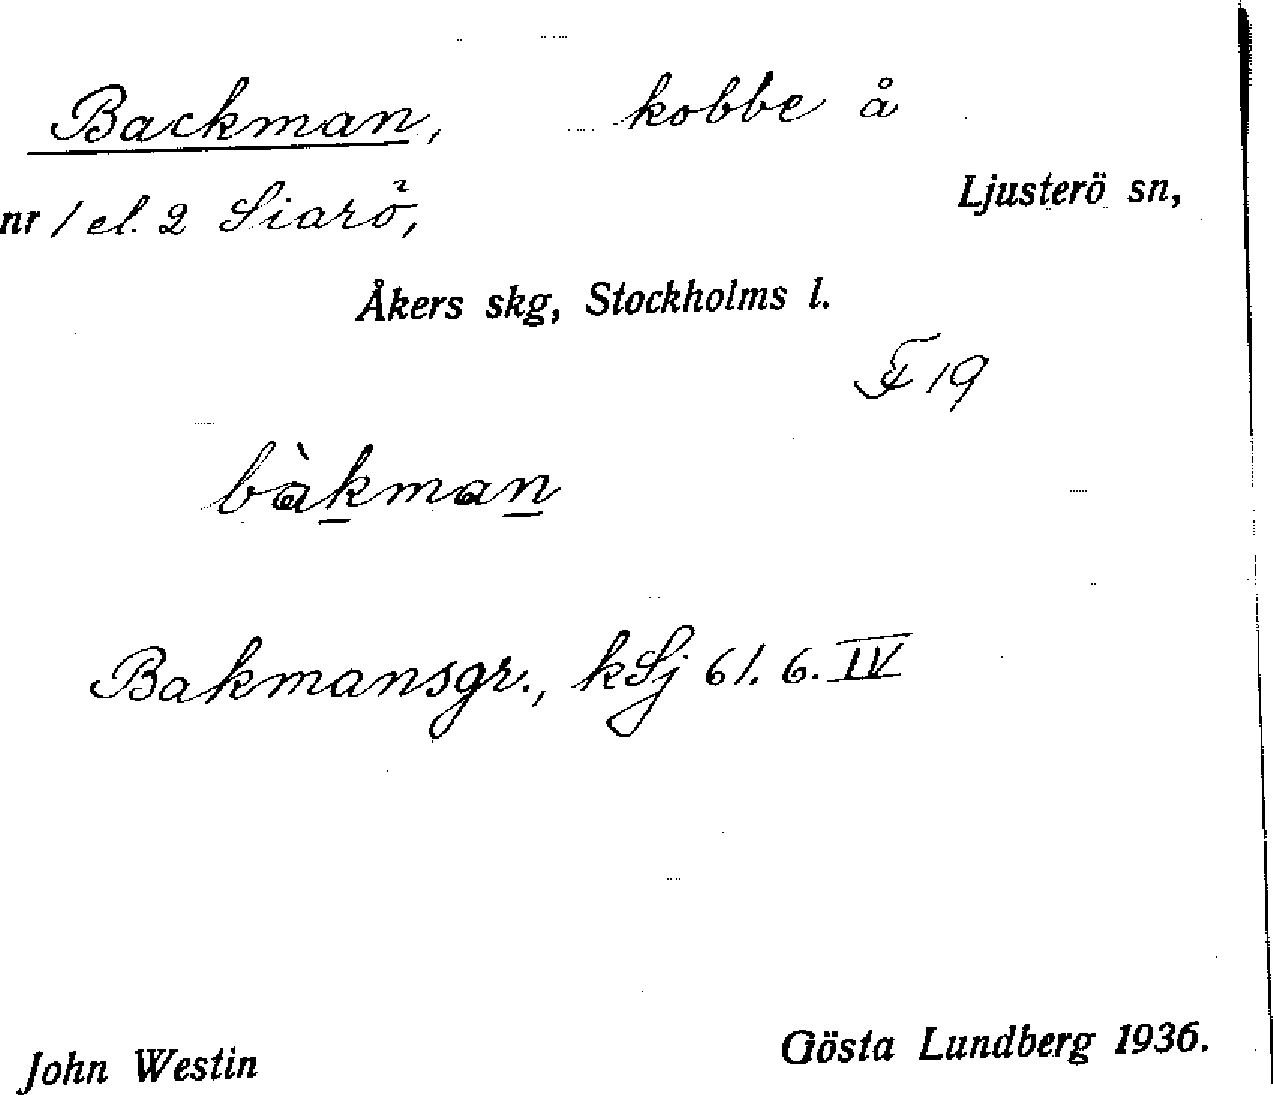 Backman, kobbe å
nr 1 el. 2 Siarö, Ljusterö sn,
Åkers skg, Stockholms l.
F 19
bàkman
Bakmansgr., kSj 61. 6. IV
John Westin Gösta Lundberg 1936.